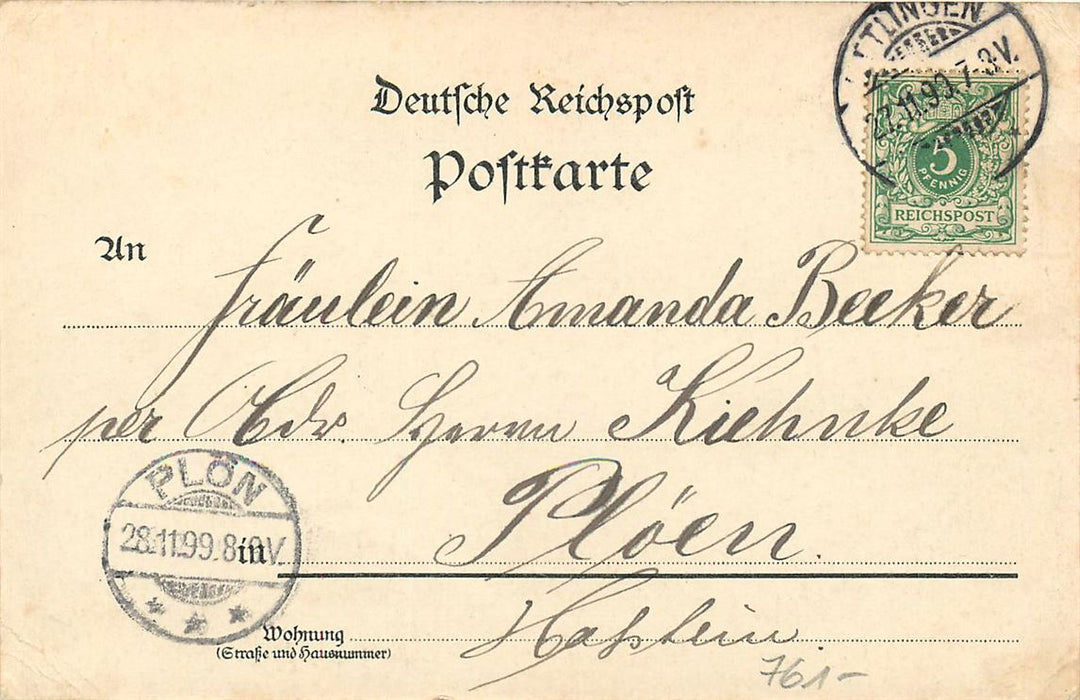 Deutsche Reichspost
Postkarte
TLINGEN
27.11.99.7-8.V.
5
PFENNIG
REICHSPOST
An
Fräulein Amanda Becker
per Adr. Herrn Kiehnke
PLÖN
28.11.99.8-9V.
in Plöen.
Holstein.
Wohnung
(Straße und Hausnummer)
761-